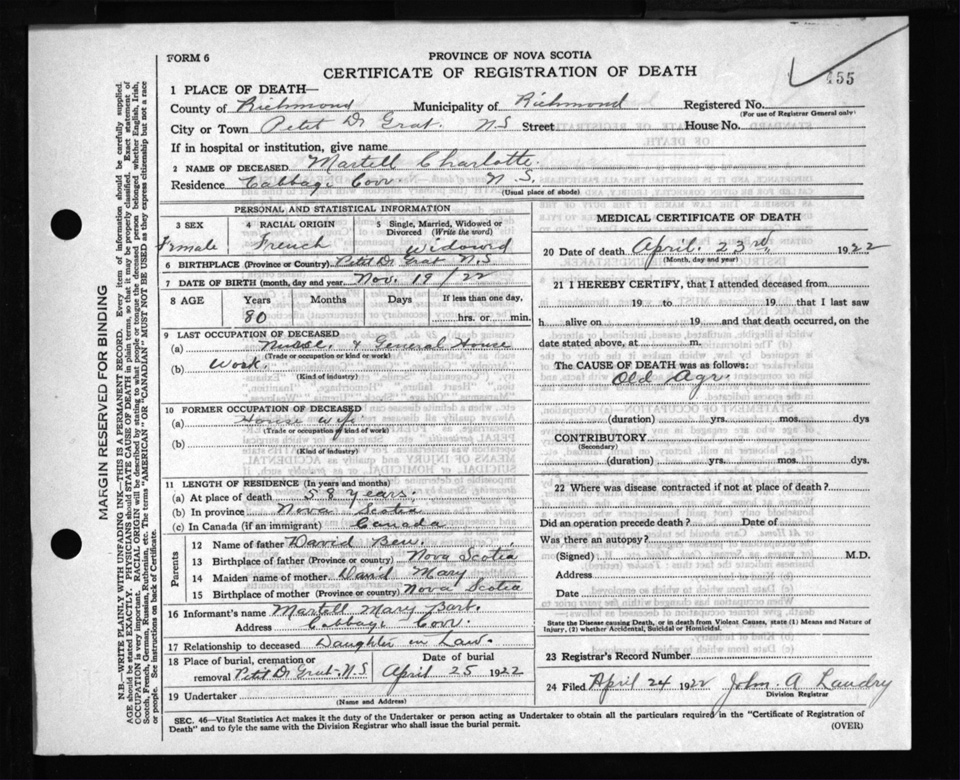 FORM 6
PROVINCE OF NOVA SCOTIA
CERTIFICATE OF REGISTRATION OF DEATH
455
1 PLACE OF DEATH—
County of Richmond Municipality of Richmond Registered No.
(For use of Registrar General only)
City or Town Petit De Grat. N.S Street House No.
If in hospital or institution, give name
2 NAME OF DECEASED Martell Charlotte.
Residence Cabbage Cove. N.S.
(Usual place of abode)
PERSONAL AND STATISTICAL INFORMATION
3 SEX 4 RACIAL ORIGIN 5 Single, Married, Widowed or Divorced (Write the word)
Female French Widowed
6 BIRTHPLACE (Province or Country) Petit De Grat N.S
7 DATE OF BIRTH (month, day and year) Nov. 19/22
8 AGE Years Months Days If less than one day,
80 hrs. or min.
9 LAST OCCUPATION OF DECEASED
(a) Nurse & General House
(Trade or occupation or kind or work)
(b) Work.
(Kind of industry)
10 FORMER OCCUPATION OF DECEASED
(a) House wife
(Trade or occupation or kind of work)
(b)
(Kind of industry)
11 LENGTH OF RESIDENCE (In years and months)
(a) At place of death 58 years.
(b) In province Nova Scotia
(c) In Canada (if an immigrant) Canada
Parents
12 Name of father David Ben.
13 Birthplace of father (Province or Country) Nova Scotia
14 Maiden name of mother David Mary
15 Birthplace of mother (Province or Country) Nova Scotia
16 Informant's name Martell Mary Barb.
Address Cabbage Cove.
17 Relationship to deceased Daughter in Law.
18 Place of burial, cremation or removal Petit De Grat. N.S Date of burial April 25 1922
19 Undertaker
(Name and Address)
MEDICAL CERTIFICATE OF DEATH
20 Date of death April. 23rd, 1922
(Month, day and year)
21 I HEREBY CERTIFY, that I attended deceased from
19 to 19 that I last saw
h alive on 19 and that death occurred, on the
date stated above, at m.
The CAUSE OF DEATH was as follows:
Old Age
(duration) yrs. mos. dys
CONTRIBUTORY
(Secondary)
(duration) yrs. mos. dys.
22 Where was disease contracted if not at place of death?
Did an operation precede death? Date of
Was there an autopsy?
(Signed) M.D.
Address
Date
State the Disease causing Death, or in death from Violent Causes, state (1) Means and Nature of
Injury, (2) whether Accidental, Suicidal or Homicidal.
23 Registrar's Record Number
24 Filed April 24 1922 John. A Landry
Division Registrar
SEC. 46—Vital Statistics Act makes it the duty of the Undertaker or person acting as Undertaker to obtain all the particulars required in the "Certificate of Registration of
Death" and to fyle the same with the Division Registrar who shall issue the burial permit.
(OVER)
MARGIN RESERVED FOR BINDING
N.B.—WRITE PLAINLY WITH UNFADING INK—THIS IS A PERMANENT RECORD. Every item of information should be carefully supplied.
AGE should be stated EXACTLY. PHYSICIANS should STATE CAUSE OF DEATH in plain terms, so that it may be properly classified. Exact statement of
OCCUPATION is very important. RACIAL ORIGIN will be described by stating to what people or tongue the deceased person belonged whether English, Irish,
Scotch, French, German, Russian, Ruthenian, etc. The terms "AMERICAN" OR "CANADIAN" MUST NOT BE USED as they express citizenship but not a race
or people. See instructions on back of Certificate.